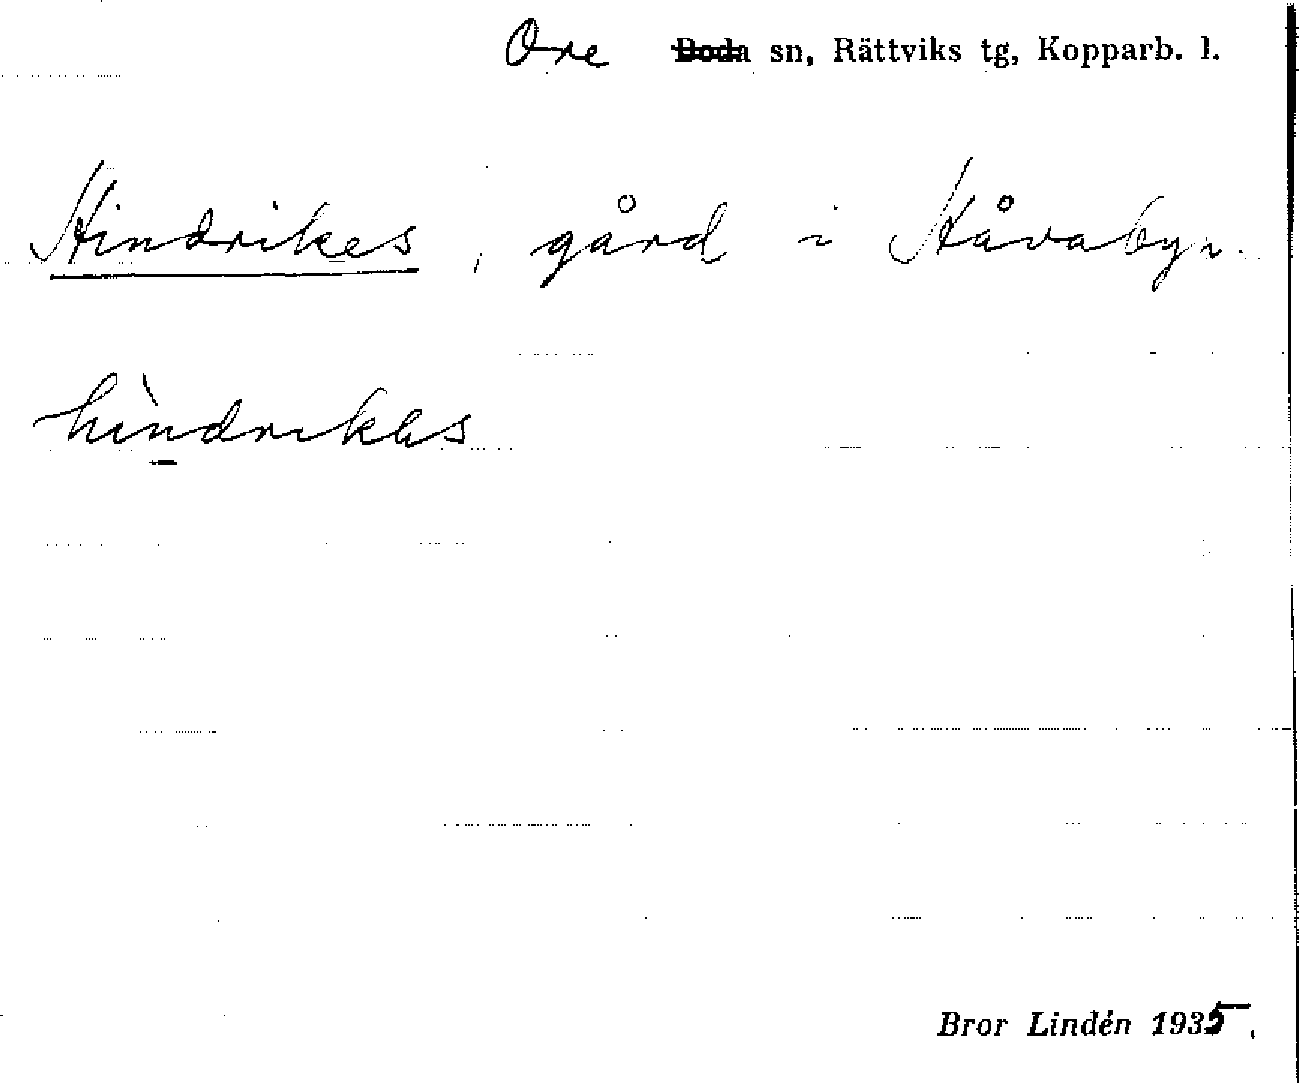 Ore Boda sn, Rättviks tg, Kopparb. l.
Hindrikes, gård i Håvabyn.
hìndrikəs
Bror Lindén 1935.